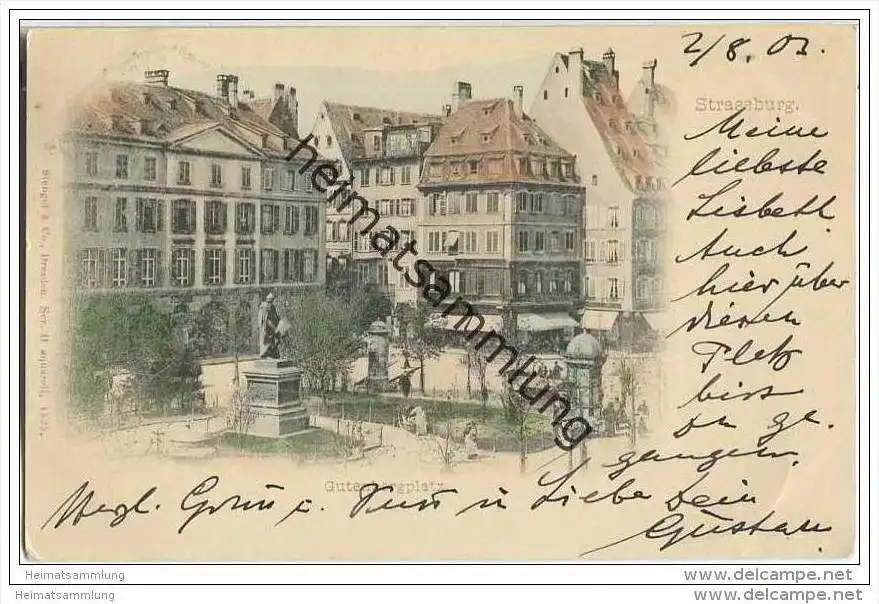 2/8. 03.
Strassburg.
Meine
liebste
Lisbeth.
Auch
hier über
diesen
Platz
bist
du ge-
gangen.
Gutenbergplatz
Herzl. Gruss u. Kuss in Liebe Dein
Gustav
Stengel & Co., Dresden. Ser. II aquarell,
heimatsammlung.de
Heimatsammlung
www.delcampe.net
Heimatsammlung
www.delcampe.net